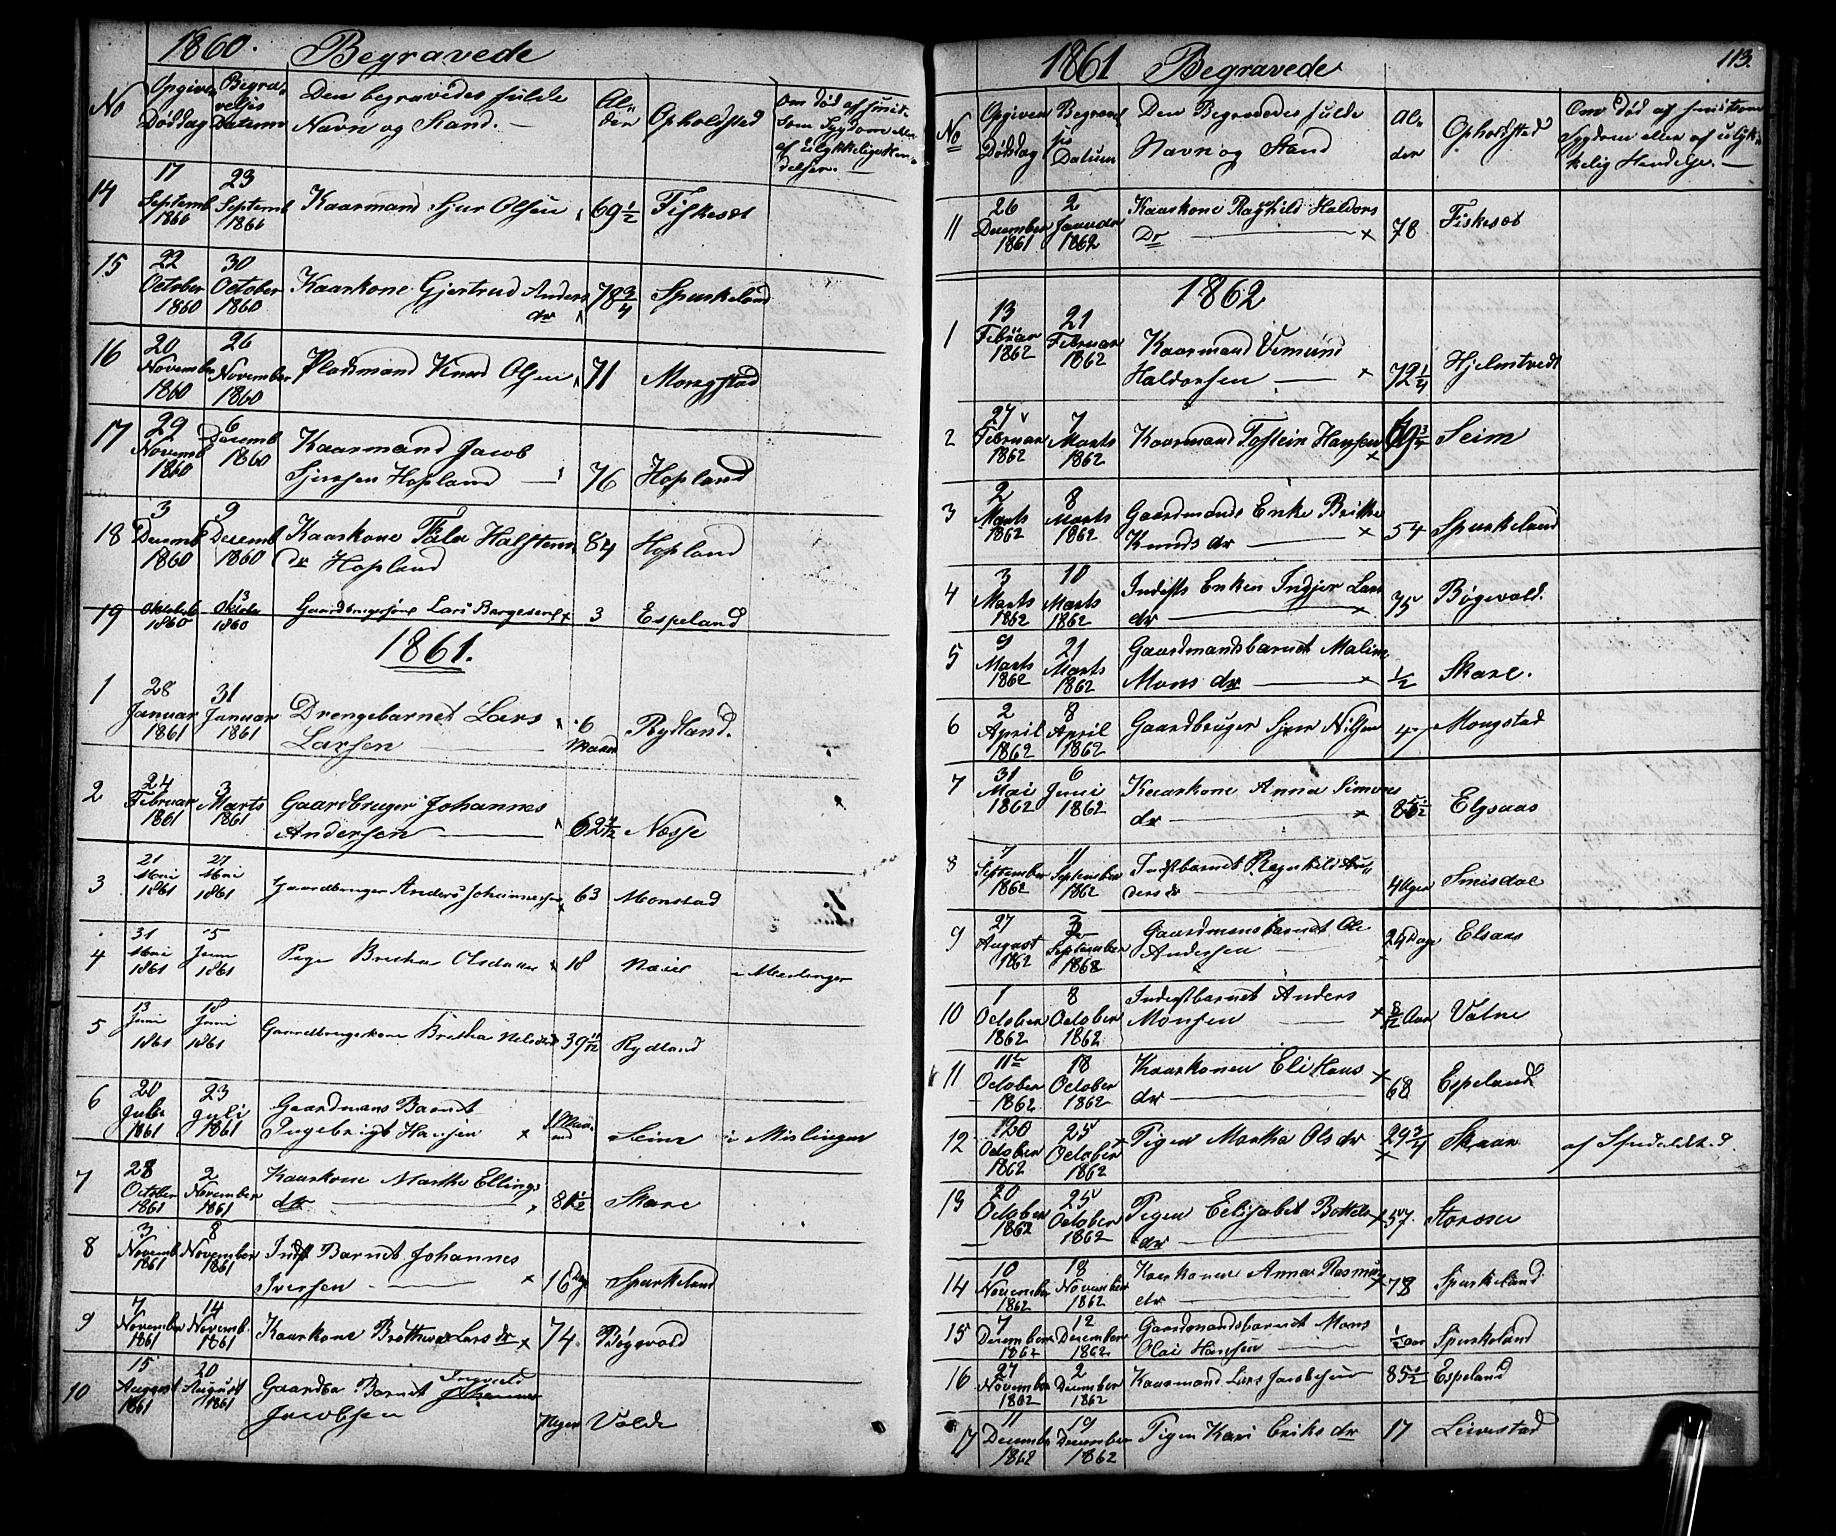 1860. Begravede
No
Opgiven Dødsdag
Begravelses Datum
Den begravedes fulde Navn og Stand. —
Alder
Opholdsted
Om død af smitsom Sygdom eller af ulykkelige Hændelser. —
14 17 Septemb 1860 23 Septemb 1860 Kaarmand Sjur Olsen 69 1/2 Fiskeset
15 22 October 1860 30 October 1860 Kaarkone Gjertrud Anders dr 78 3/4 Spurkeland
16 20 November 1860 26 November 1860 Pladsmand Knud Olsen 71 Mongstad
17 29 Novemb 1860 6 Decemb 1860 Kaarmand Jacob
Sjursen Hopland 76 Hopland
18 3 Decemb 1860 9 Decemb 1860 Kaarkone Halstens
dr Hopland 84 Hopland
19 Oktober 1860 13 Oktober 1860 Gaardbrugersøn Lars Børgesen x 3 Espeland
1861.
1 28 Januar 1861 31 Januar 1861 Drengebarnet Lars
Larsen 6 Maaned Rydland.
2 24 Februar 1861 3 Marts 1861 Gaardbruger Johannes
Andersen 62 Næsse
3 21 Mai 1861 27 Mai 1861 Gaardbruger Anders Johannessen 63 Monstad
4 31 Mai 1861 5 Juni 1861 Pige Bretha Olsdatter 18 Mæslinger
5 13 Juni 1861 18 Juni 1861 Gaardbrugerkone Bretha Nilsdtr 39 Rydland
6 20 Juli 1861 23 Juli 1861 Gaardmans Barnet
Ingebrigt Hansen x Seim Mislinger
7 28 October 1861 2 November 1861 Kaarkone Marthe Ellings
dr 81 1/2 Skare
8 3 Novemb 1861 8 November 1861 Indst Barnet Johannes
Iversen x 16 Dag Spurkeland
9 7 November 1861 14 Novemb. 1861 Kaarkone Lars dr x 74. Bøgevold
10 15 August 1861 20 August 1861 Gaardbr Barnet Ingvald
Jacobsen Uger Valde
1861 Begravede
113.
No
Opgiven Dødsdag
Begravels Datum
Den Begravedes fulde Navn og Stand
Alder
Opholdsted
Om død af smitsom Sygdom eller af ulykkelig Hændelse. —
11 26 December 1861 2 Januar 1862 Kaarkone Raghild Haldors
Dr x 78 Fiskeset
1862
1 13 Februar 1862 21 Februar 1862 Kaarmand Vemund
Haldorsen x 72 1/4 Hjelmtvedt
2 27 Februar 1862 7 Marts 1862 Kaarmand Tostein Hansen x 69 3/4 Seim
3 2 Marts 1862 8 Marts 1862 Gaardmands Enke Brithe
Knuds dr x 54 Spurkeland
4 3 Marts 1862 10 Marts 1862 Indests Enken Ingjer Lars
dr x 75 Bøgevold.
5 9 Marts 1862 21 Marts 1862 Gaardmandsbarnet Maline
Mons dr x 1/2 Skare.
6 2 April 1862 8 April 1862 Gaardbruger Sjur Nilsen 47 Mongstad
7 31 Mai 1862 6 Juni 1862 Kaarkone Anna Simons
dr x Elgsaas
8 7 September 1862 11 September 1862 Indstbarnet Ragnhild An-
ders dr 4 Uger Smisdal
9 27 August 1862 3 September 1862 Gaardmansbarnet Ole
Andersen Dage Elsaas
10 1 October 1862 8 October 1862 Inderstbarnet Anders
Monsen x 8/12 Aar Vatne
11 11te October 1862 18 October 1862 Kaarkonen Eli Hans
dr x 68 Espeland
12 20 October 1862 25 October 1862 Pigen Martha Ols dr x 29 3/4 Skaar af Spedalskhed
13 20 October 1862 25 October 1862 Pigen Elisabet Bottels
dr x 57. Storøen
14 10 November 1862 18 November 1862 Kaarkonen Anna Rasmus
dr x 78 Spurkeland
15 7 December 1862 12 December 1862 Gaardmandsbarnet Mons
Olai Hansen 1/2 aar Spurkeland
16 27 November 1862 2 December 1862 Kaarmand Lars Jacobsen 85 1/2 Espeland
17 11 December 1862 19 December 1862 Pigen Kari Eriks dr 17 Leivestad